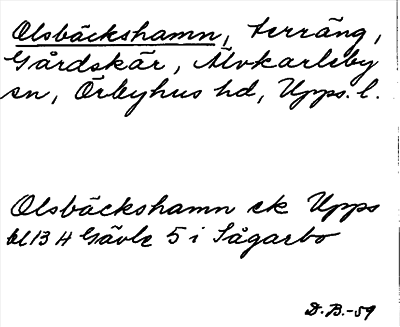 Olsbäckshamn, terräng,
Gårdskär, Älvkarleby
sn, Örbyhus hd, Upps. l.
Olsbäckshamn ek Upps
bl 13 H Gävle 5 i Sågarbo
D.B.-59